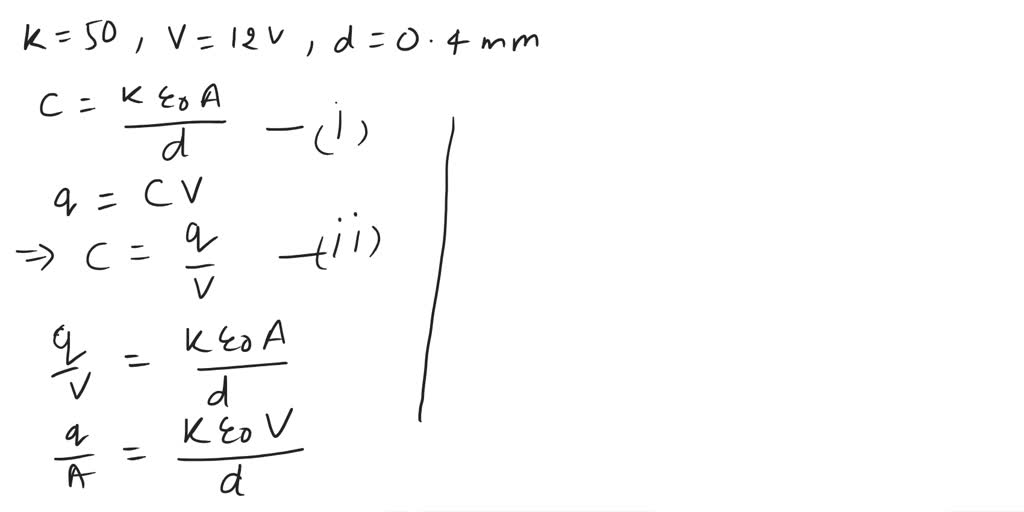 K = 50 , V = 12 V , d = 0.4 mm
C = K ε0 A / d —(i)
q = C V
⇒ C = q / V —(ii)
q / V = K ε0 A / d
q / A = K ε0 V / d